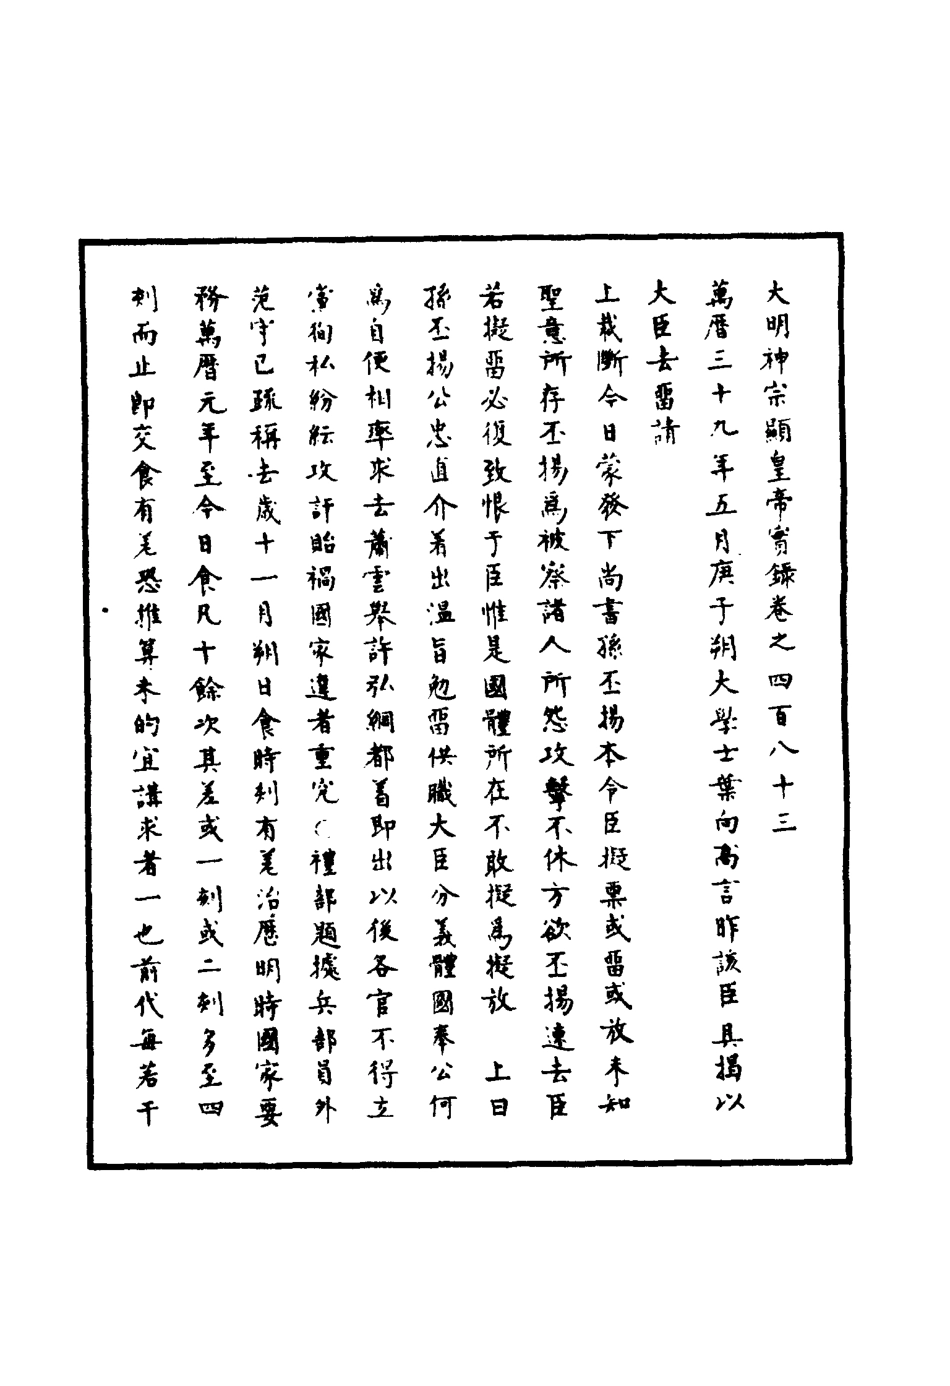 大明神宗顯皇帝實錄卷之四百八十三
萬曆三十九年五月庚子朔大學士葉向高言昨該臣具揭以
大臣去畱請
上裁斷今日蒙發下尚書孫丕揚本令臣擬票或畱或放未知
聖意所存丕揚爲被察諸人所怨攻擊不休方欲丕揚速去臣
若擬畱必復致恨于臣惟是國體所在不敢擬爲擬放　上曰
孫丕揚公忠直介着出溫旨勉畱供職大臣分義體國奉公何
爲自便相率求去蕭雲舉許弘綱都着即出以後各官不得立
黨狥私紛紜攻訐貽禍國家違者重究○禮部題據兵部員外
范守己疏稱去歲十一月朔日食時刻有差治曆明時國家要
務萬曆元年至今日食凡十餘次其差或一刻或二刻多至四
刻而止即交食有差恐推算未的宜講求者一也前代每若干